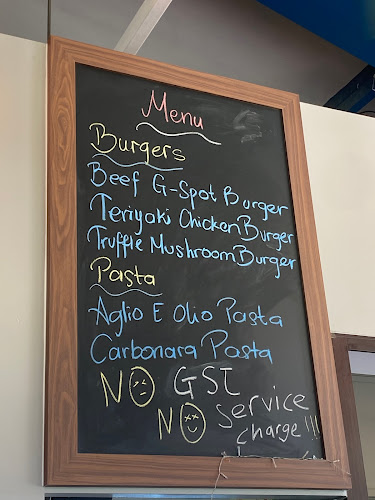 Menu
Burgers
Beef G-Spot Burger
Teriyaki Chicken Burger
Truffle Mushroom Burger
Pasta
Aglio E Olio Pasta
Carbonara Pasta
NO GST
NO Service
charge!!!